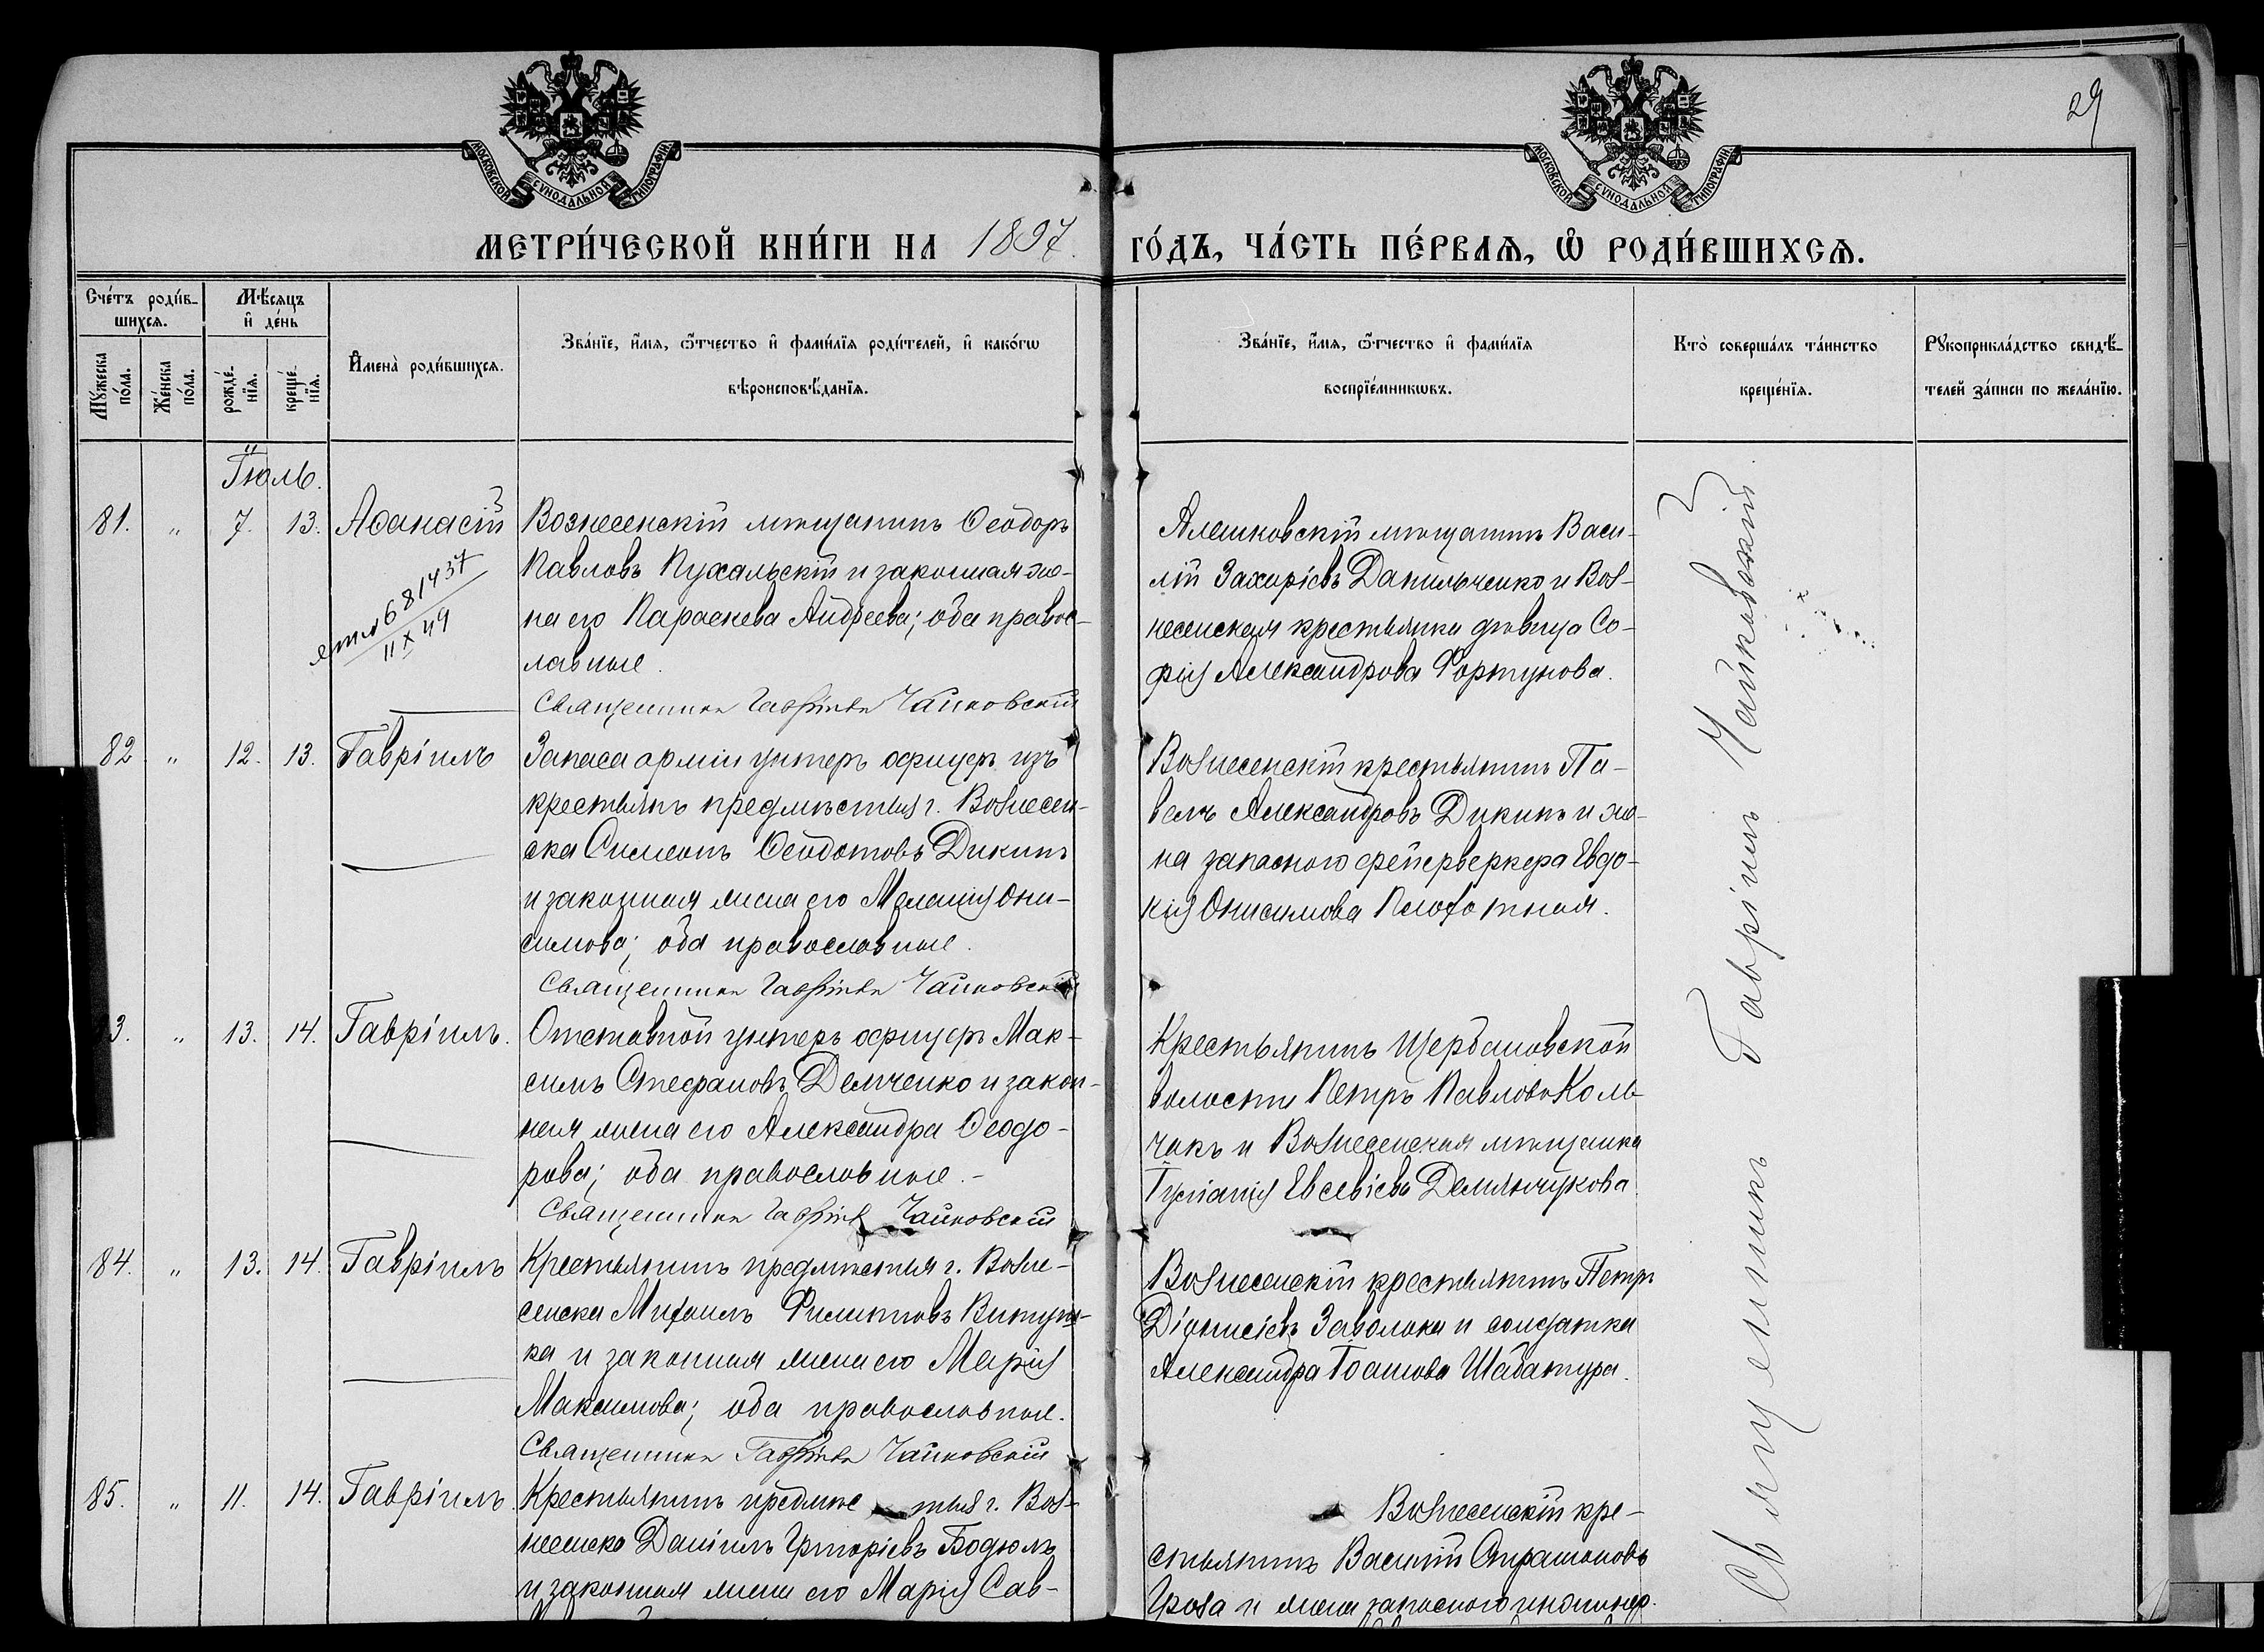 29
МОСКОВСКОЙ СѴНОДАЛЬНОЙ ТИПОГРАФІИ
МОСКОВСКОЙ СѴНОДАЛЬНОЙ ТИПОГРАФІИ
МЕТРИ́ЧЕСКОЙ КНИ́ГИ НА 1897. ГО́ДЪ, ЧА́СТЬ ПЕ́РВАЯ, Ѡ҆ РОДИ́ВШИХСЯ.
Сче́тъ роди́в-
шихся.
Мꙋ́жеска по́ла.
Же́нска по́ла.
Мѣ́сяцъ
и҆ де́нь
рожде́-
нїя.
креще́-
нїя.
И҆мена̀ роди́вшихся.
Зва́нїе, и҆́мя, ѻ҆́тчество и҆ фами́лїя роди́телей, и҆ како́гѡ
вѣроисповѣ́данїя.
Зва́нїе, и҆́мя, ѻ҆́тчество и҆ фами́лїя
воспрїе́мникѡвъ.
Кто̀ соверша́лъ та́инство
креще́нїя.
Рꙋкоприкла́дство свидѣ́-
телей за́писи по жела́нїю.
Іюль.
81. " 7. 13. Аѳанасій
681437
11 X 49
Вознесенскій мѣщанинъ Ѳеодоръ
Павловъ Пухальскій и законная же-
на его Параскева Андреева; оба правос-
лавные.
Священникъ Гавріилъ Чайковскій
Алешковскій мѣщанинъ Васи-
лій Захаріевъ Данильченко и Воз-
несенская крестьянка дѣвица Со-
фія Александрова Фортунова.
82 " 12. 13. Гавріилъ
Запаса арміи унтеръ офицеръ изъ
крестьянъ предмѣстья г. Вознесен-
ска Симеонъ Ѳеодотовъ Дикинъ
и законная жена его Меланія Они-
симова; оба православные.
Священникъ Гавріилъ Чайковскій
Вознесенскій крестьянинъ Па-
велъ Александровъ Дикинъ и же-
на запасного фейерверкера Евдо-
кія Онисимова Плохотная.
3. " 13. 14. Гавріилъ.
Отставной унтеръ офицеръ Мак-
симъ Стефановъ Демченко и закон-
ная жена его Александра Ѳеодо-
рова; оба православные.-
Священникъ Гавріилъ Чайковскій
Крестьянинъ Щербановской
волости Петръ Павловъ Коль-
чакъ и Вознесенская мѣщанка
Іуліанія Евсевіева Демянчукова.
84. " 13. 14. Гавріилъ
Крестьянинъ предмѣстья г. Возне-
сенска Михаилъ Филипповъ Витун-
ка и законная жена его Марія
Максимова; оба православные.
Священникъ Гавріилъ Чайковскій
Вознесенскій крестьянинъ Петръ
Діонисіевъ Заволока и солдатка
Александра Іоанова Шабатура.
85. " 11. 14. Гавріилъ
Крестьянинъ предмѣстья г. Воз-
несенска Даніилъ Григоріевъ Бодюлъ
и законная жена его Марія Сав-
Вознесенскій кре-
стьянинъ Василій Стратоновъ
Гроза и жена запасного
Священникъ Гавріилъ Чайковскій